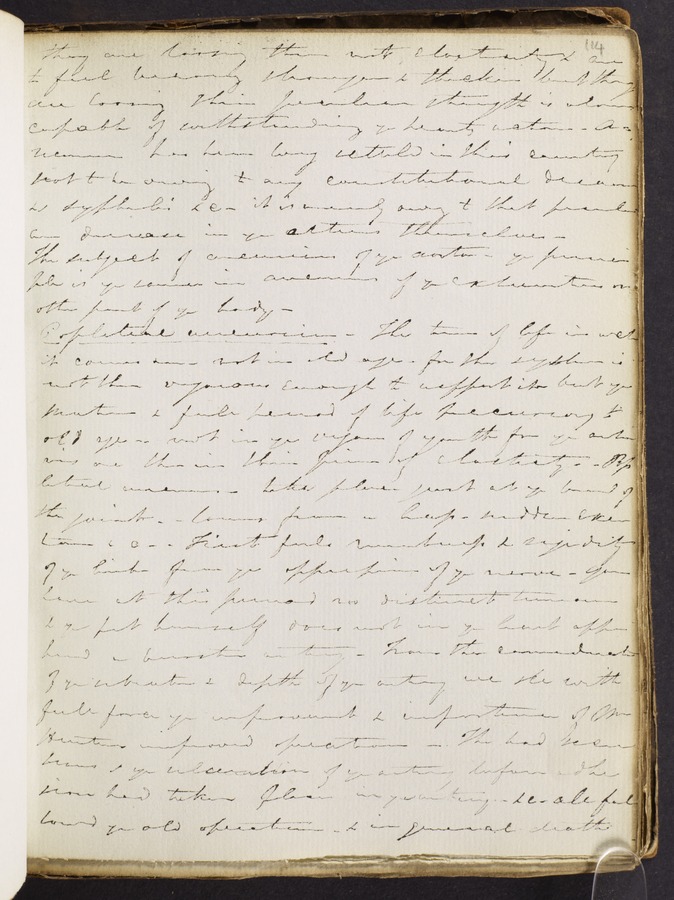 114
they are losing their elasticity & are
to feel becoming stronger & thicker but they
are loosing their peculiar strength & alone
capable of withstanding ye hearts action - A
has been long settled in this country
not to be owing to any constitutional disease
as syphilis &c - it is merely owg to that peculi
ar disease in ye arteries themselves -
The subject of aneurism of ye aorta - ye princi
ple is ye same in aneurism of ye extremities or
other part of ye body -
Popliteal aneurism - The time of life in wch
it comes on - not in old age - for the system is
not then vigorous enough to support it but ye
mature & full period of life precursory to
old age - not in ye vigor of youth for ye arte
ries are then in their prime of elasticity - Pop
liteal aneurism - takes place just at ye bend of
the joint - comes from a leap - sudden exer
tion &c - First feels numbness & rigidity
of ye limb from ye oppression of ye nerve -
have at this period no distinct tumour
& ye pat himself does not in ye least appre
hend - From the consideration
of ye situation & depth of ye artery we see with
full force ye improvement & importance of Mr
Hunters improved operation - He had seen
ye ulceration of ye artery before adhe
sion had taken place in ye artery - &c - all fol
lowed ye old operation - & in general death